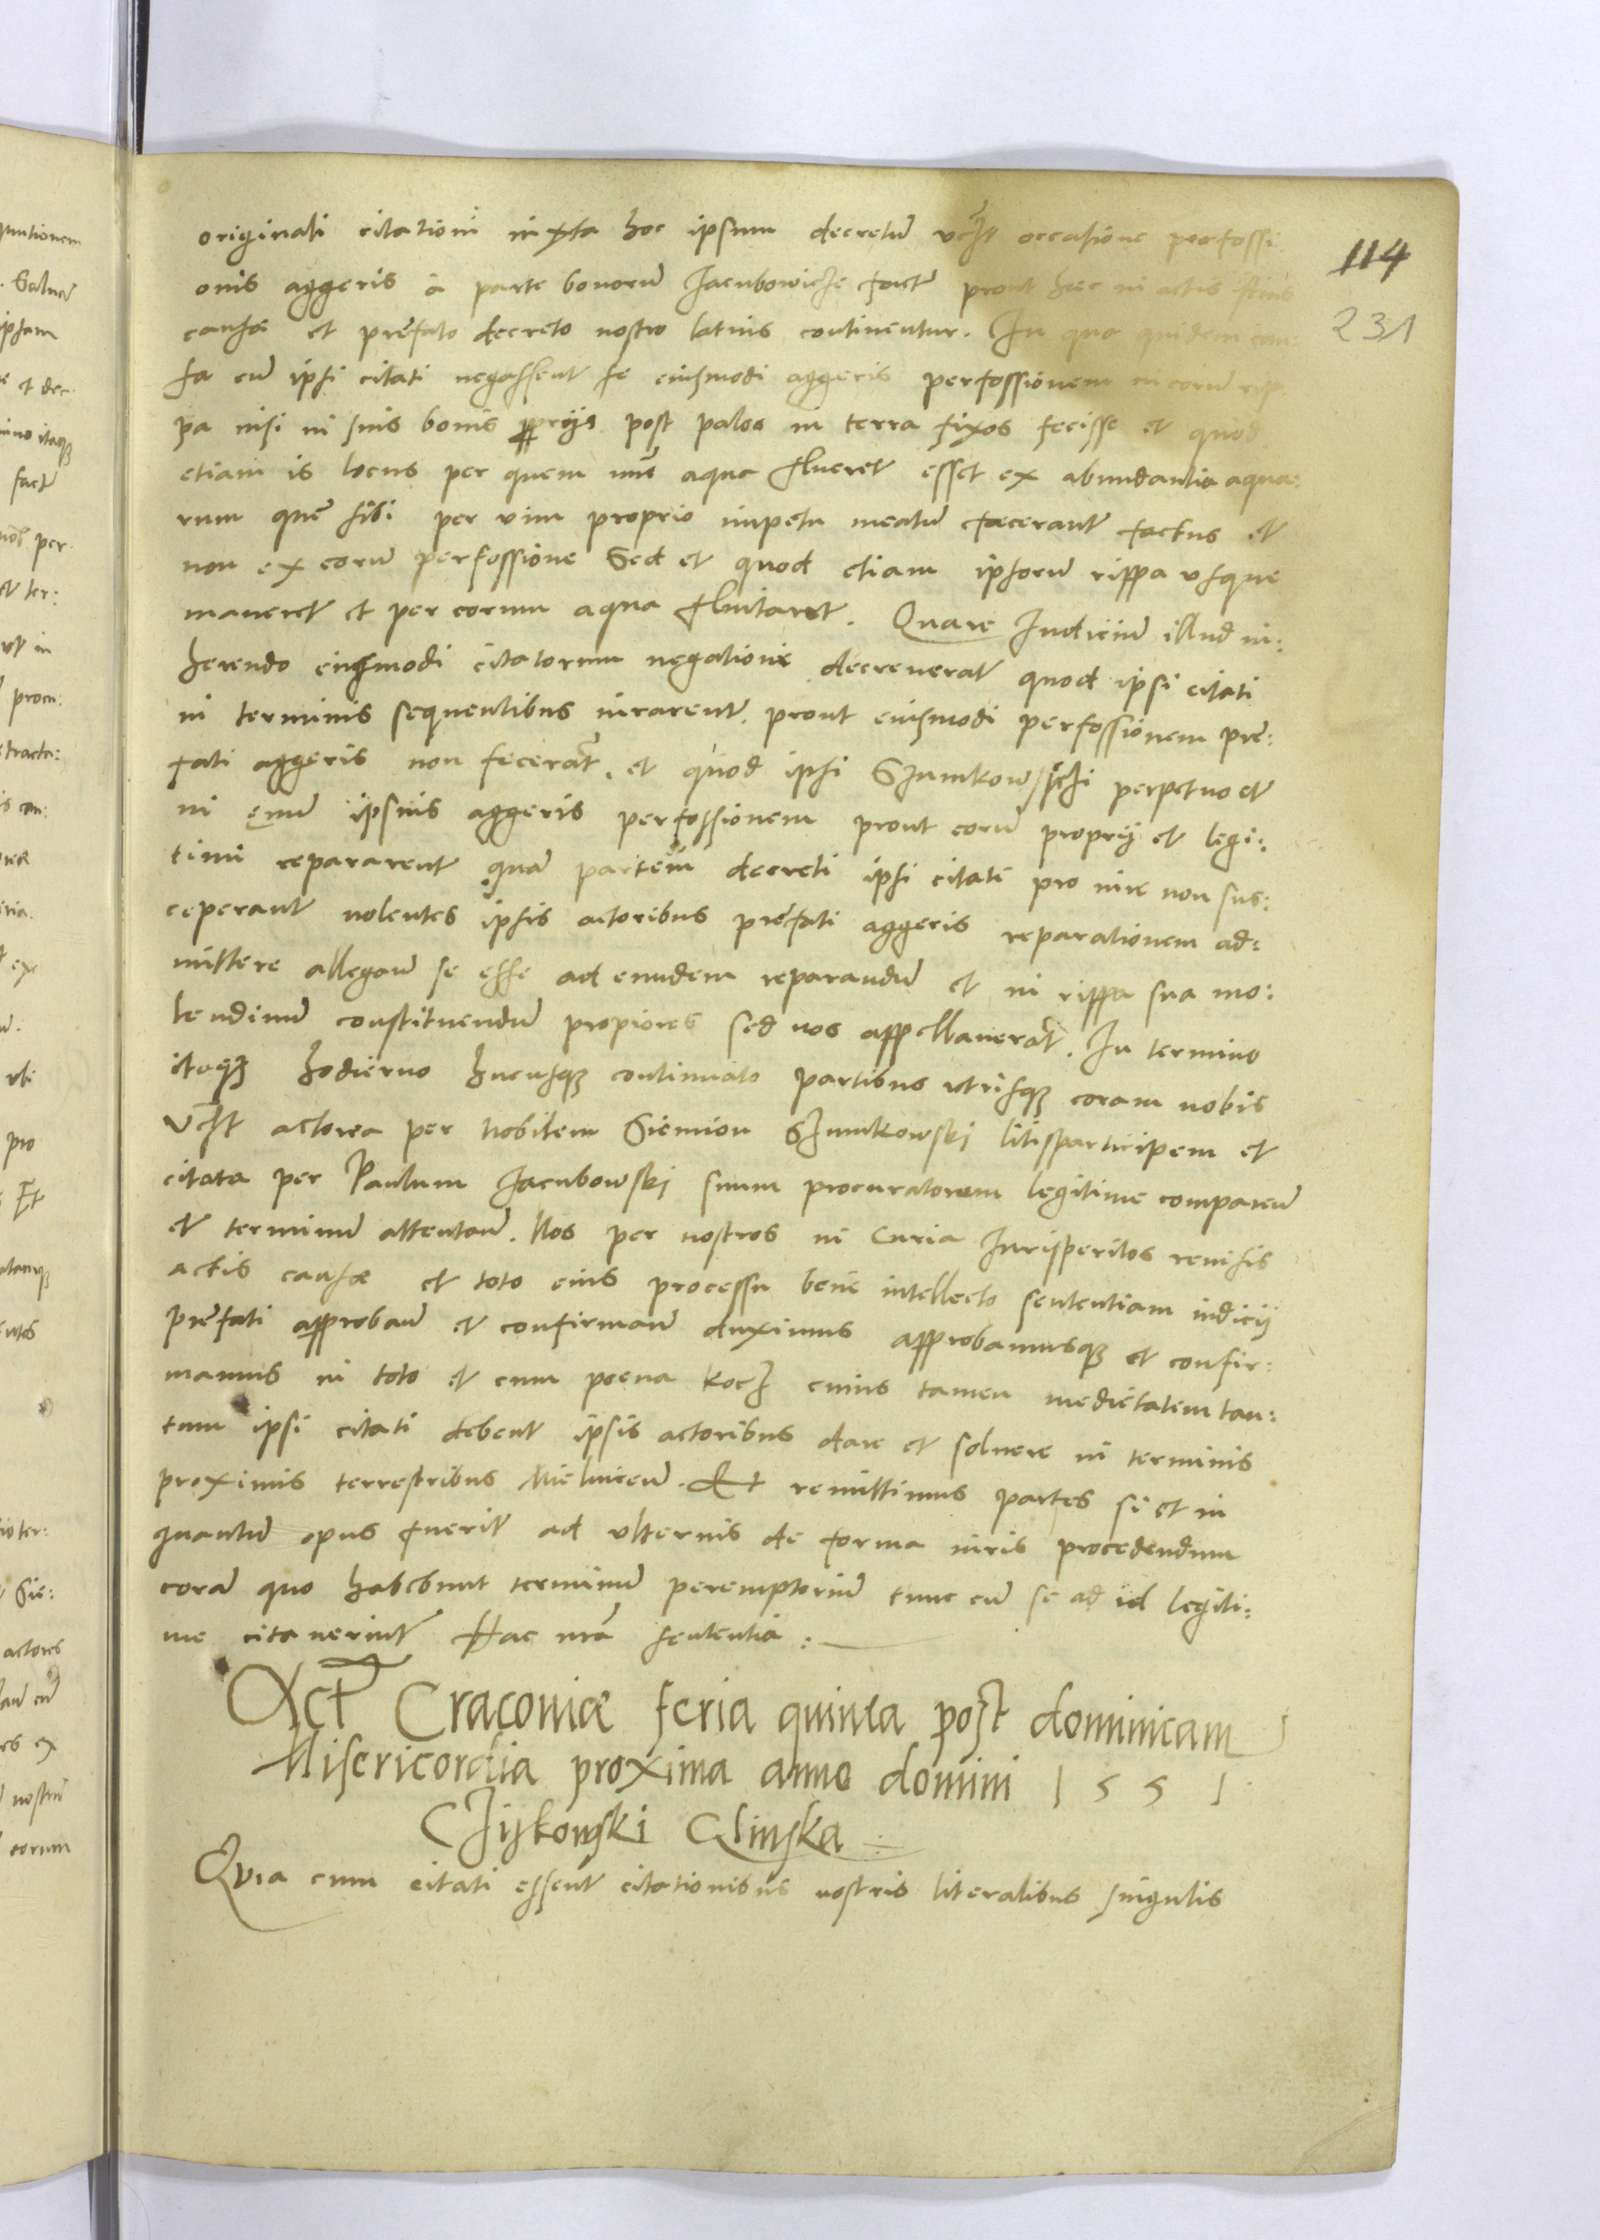 114
231
originali citationi iuxta hoc ipsum decretū vcʒlt occasione perfossi
onis aggeris a parte bonorū Jacubowicʒe factē prout hec in actis
causæ et prefato decreto nostro latius continentur. In qua quidem cau:
sa cū ipsi citati negassent se eiusmodi aggeris perfossionem in eorū rip
pa nisi in suis bonis proprijs post palos in terra fixos fecisse et quod
etiam is locus per quem nūc aqua flueret esset ex abundantia aqua:
rum que sibi per vim proprio impetu meatū fecerant factus et
non ex eorū perfossione Sed et quod etiam ipsorū rippa vsque
maneret et per eorum aqua fluitaret. Quare Iudiciū illud in:
herendo eiusmodi citatorum negationi decreuerat quod ipsi citati
in terminis sequentibus iurarent prout eiusmodi perfossionem pre:
fati aggeris non fecerāt, et quod ipsi Sʒumkowsscʒi perpetuo et
in ęuum ipsius aggeris perfossionem prout eorū proprij et legi:
timi repararent quā partem decreti ipsi citati pro iure non sus:
ceperant nolentes ipsis actoribus prefati aggeris reparationem ad:
mittere allegan̄ se esse ad eundem reparandū et in rippa sua mo:
lendinū constituendū propiores sed nos appellauerāt. In termino
itaqʒ hodierno hucusqʒ continuato partibus vtrisqʒ coram nobis
vcʒlt actorea per Nobilem Siemion Sʒumkowski litisparticipem et
citata per Paulum Jacubowski suum procuratorem legitime comparen̄
et terminū attentan̄. Nos per nostros in Curia Jurisperitos reuisis
actis causæ et toto eius processu bene intellecto sententiam iudicij
prefati approban̄ et confirman̄ duximus approbamusqʒ et confir:
mamus in toto et cum poena kocʒ cuius tamen medietatem tan:
tum ipsi citati debent ipsis actoribus dare et soluere in terminis
proximis terrestribus Mielnicen̄. Et remittimus partes si et in
quantū opus fuerit ad vlterius de forma iuris procedendum
corā quo habebunt terminū peremptoriū tunc cū se ad id legiti:
me citauerint Hac nrā sententia :
Act Cracouiæ feria quinta post dominicam
Misericordia proxima anno domini 1551
Cʒijkowski Glinska
Quia cum citati essent citationibus nostris literalibus singulis